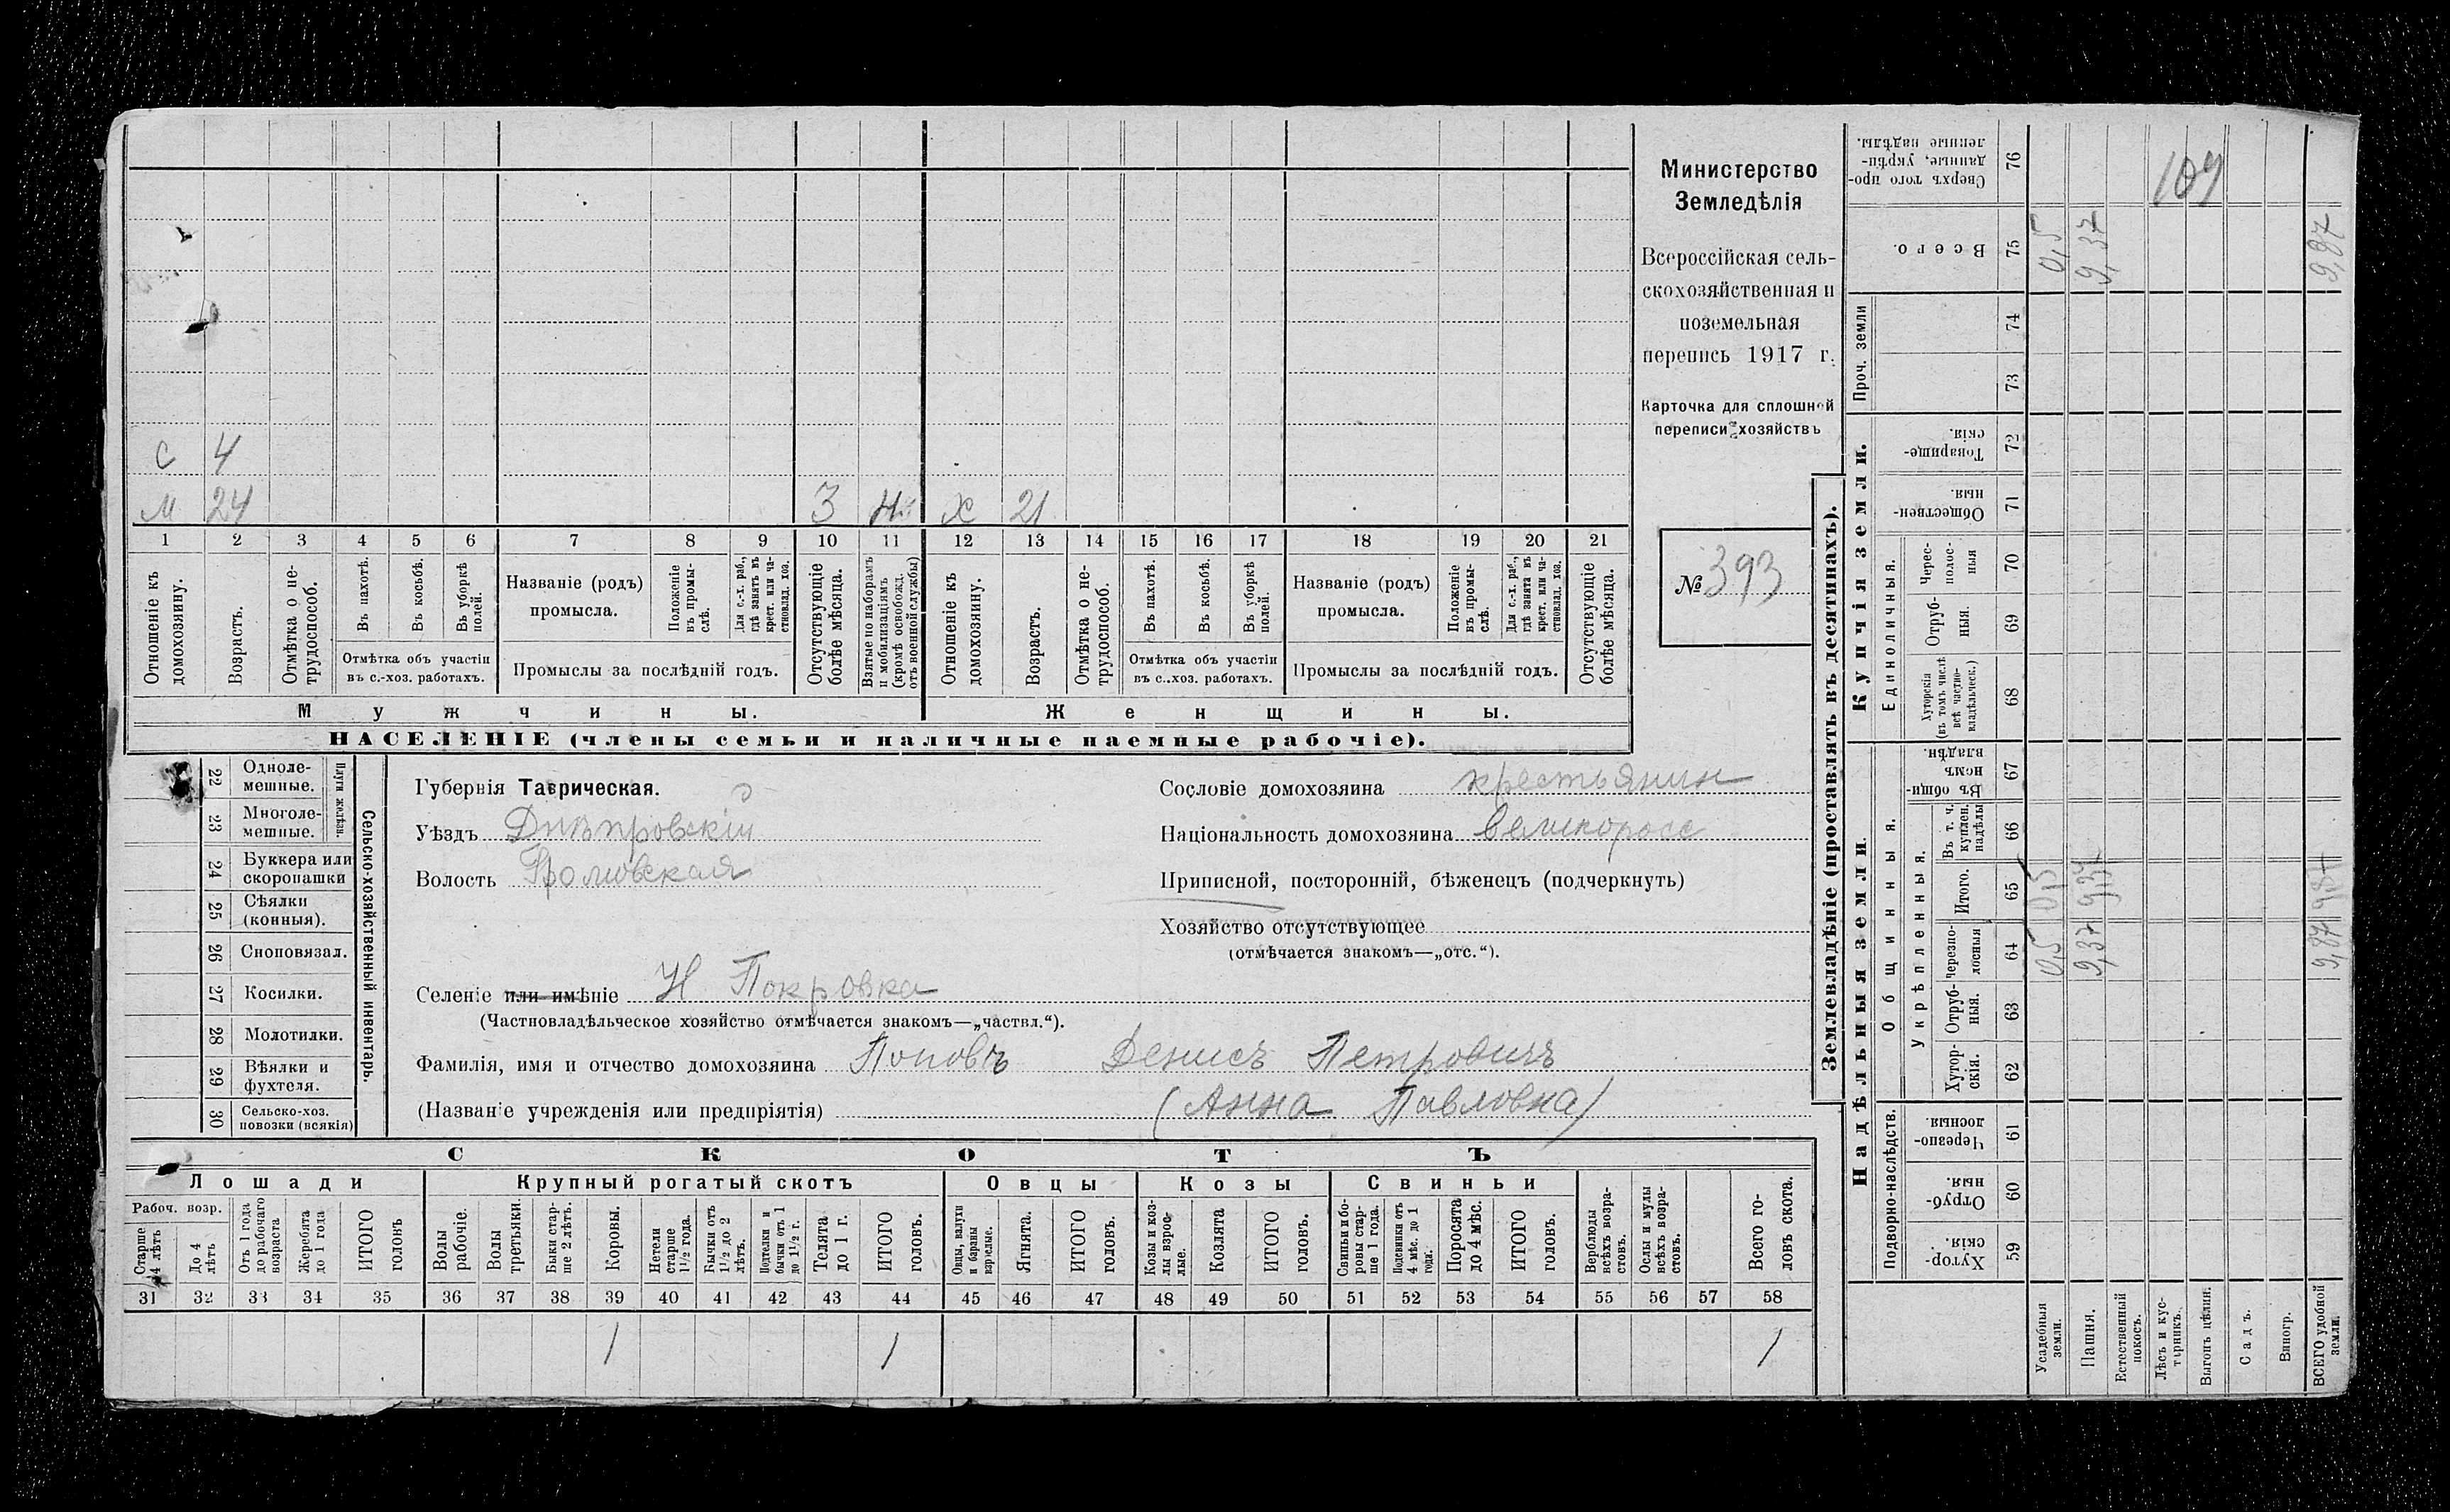 С 4
М 24 3 Х 21
1 2 3 4 5 6 7 8 9 10 11 12 13 14 15 16 17 18 19 20 21
Отношеніе къ домохозяину.
Возрастъ.
Отмѣтка о не-трудоспособ.
Въ пахотѣ.
Въ косьбѣ.
Въ уборкѣ полей.
Отмѣтка объ участіи
въ с.-хоз. работахъ.
Названіе (родъ)
промысла.
Положеніе въ промы-слѣ.
Для с.-х. раб., гдѣ занятъ въ крест. или ча-стновлад. хоз.
Промыслы за послѣдній годъ.
Отсутствующіе болѣе мѣсяца.
Взятые по наборамъ и мобилизаціямъ (кромѣ освобожд. отъ военной службы)
Отношеніе къ домохозяину.
Возрастъ.
Отмѣтка о не-трудоспособ.
Въ пахотѣ.
Въ косьбѣ.
Въ уборкѣ полей.
Отмѣтка объ участіи
въ с..хоз. работахъ.
Названіе (родъ)
промысла.
Положеніе въ промы-слѣ.
Для с.-х. раб., гдѣ занята въ крест. или ча-стновлад. хоз.
Промыслы за послѣдній годъ.
Отсутствующіе болѣе мѣсяца.
Мужчины.
Женщины.
НАСЕЛЕНІЕ (члены семьи и наличные наемные рабочіе).
Министерство
Земледѣлія
Всероссійская сель-
скохозяйственная и
поземельная
перепись 1917 г.
Карточка для сплошной
переписи хозяйствъ
№ 393
Сельско-хозяйственный инвентарь.
Плуги желѣзн.
22 Одноле-мешные.
23 Многоле-мешные.
24 Буккера или скоропашки
25 Сѣялки (конныя).
26 Сноповязал.
27 Косилки.
28 Молотилки.
29 Вѣялки и фухтеля.
30 Сельско-хоз. повозки (всякія)
Губернія Таврическая.
Уѣздъ Днѣпровскій
Волость Громовская
Сословіе домохозяина крестьянин
Національность домохозяина великоросс
Приписной, посторонній, бѣженецъ (подчеркнуть)
Хозяйство отсутствующее
(отмѣчается знакомъ—„отс.“).
Селеніе или имѣніе Н Покровка
(Частновладѣльческое хозяйство отмѣчается знакомъ—„частвл.“).
Фамилія, имя и отчество домохозяина Поповъ Денисъ Петровичъ
(Названіе учрежденія или предпріятія) (Анна Павловна)
СКОТЪ
Лошади
Крупный рогатый скотъ
Овцы
Козы
Свиньи
Рабоч. возр.
Старше 4 лѣтъ
До 4 лѣтъ
Отъ 1 года до рабочаго возраста
Жеребята до 1 года
ИТОГО головъ
Волы рабочіе.
Волы третьяки.
Быки стар-ше 2 лѣтъ.
Коровы.
Нетели старше 1½ года.
Бычки отъ 1½ до 2 лѣтъ.
Подтелки и бычки отъ 1 до 1½ г.
Телята до 1 г.
ИТОГО головъ.
Овцы, валухи и бараны взрослые.
Ягнята.
ИТОГО головъ.
Козы и коз-лы взрос-лые.
Козлята
ИТОГО головъ.
Свиньи и бо-ровы стар-ше 1 года.
Подсвинки отъ 4 мѣс. до 1 года.
Поросята до 4 мѣс.
ИТОГО головъ.
Верблюды всѣхъ возра-стовъ.
Ослы и мулы всѣхъ возра-стовъ.
Всего го-ловъ скота.
31 32 33 34 35 36 37 38 39 40 41 42 43 44 45 46 47 48 49 50 51 52 53 54 55 56 57 58
1 1 1
Землевладѣніе (проставлять въ десятинахъ).
Надѣльныя земли.
Купчія земли.
Проч. земли
Подворно-наслѣдств.
Общинныя.
Укрѣпленныя.
Единоличныя.
Сверхъ того про-данные, укрѣп-ленные надѣлы. 76 109
Всего. 75 0,5 9,37 9,87
74
73
Товарище-скія. 72
Обществен-ныя. 71
Черес-полос-ныя 70
Отруб-ныя. 69
Хуторскія (въ томъ числѣ всѣ частно-владѣльческ.) 68
Въ общи-номъ владѣн. 67
Въ т. ч. куплен. надѣлы 66
Итого. 65 0,5 9,37 9,87
Черезпо-лосныя 64 0,5 9,37 9,87
Отруб-ныя. 63
Хутор-скія. 62
Черезпо-лосныя. 61
Отруб-ныя. 60
Хутор-скія. 59
Усадебныя земли.
Пашня.
Естественный покосъ.
Лѣсъ и кус-тарникъ.
Выгонъ цѣлин.
Садъ.
Виногр.
ВСЕГО удобной земли.